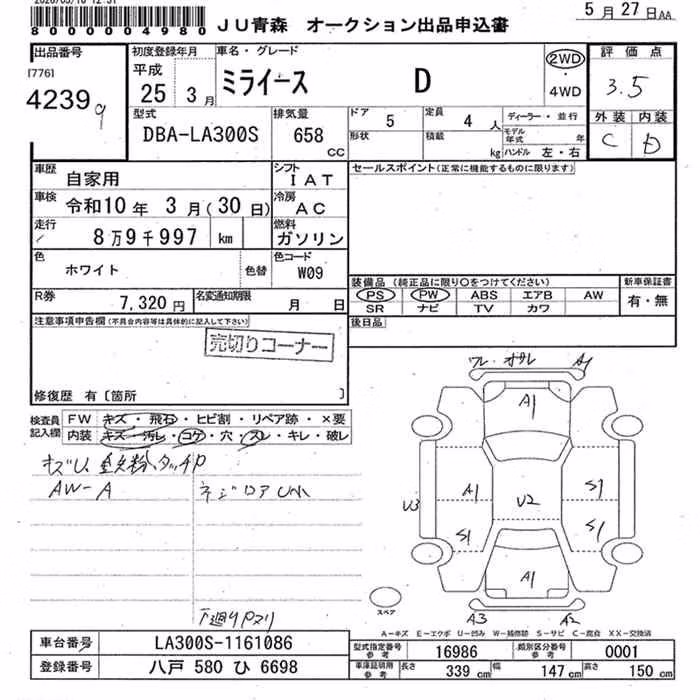 8000004980
JU青森 オークション出品申込書
5月27日AA
出品番号
[776]
4239
初度登録年月
平成
25 3月
車名・グレード
ミライース D
2WD
4WD
評価点
3.5
外装 内装
C D
型式
DBA-LA300S
排気量
658
CC
ドア 5
定員 4 人
形状
積載 kg
ディーラー・並行
モデル年式 年
ハンドル 左・右
車歴 自家用
シフト IAT
セールスポイント(正常に機能するものに限ります)
車検 令和10年 3月(30日)
冷房 AC
走行 8万9千997 km
燃料 ガソリン
色 ホワイト 色替
色コード W09
R券 7,320円
名変通知期限 月 日
装備品 (純正品に限り○をつけてください)
PS PW ABS エアB AW
SR ナビ TV カワ
新車保証書
有・無
後日品
注意事項申告欄(不具合内容等は具体的に記入して下さい)
売切りコーナー
修復歴 有〔箇所 〕
検査員記入欄
FW キズ・飛石・ヒビ割・リペア跡・×要
内装 キズ・汚レ・コゲ・穴・スレ・キレ・破レ
AW-A
下廻りサビ
A1
A1
A1
U2
S1
U3
S1
S1
A1
A3
A2
スペア
A-キズ E-エクボ U-凹み W-補修跡 S-サビ C-腐食 XX-交換済
車台番号 LA300S-1161086
登録番号 八戸 580 ひ 6698
型式指定番号 参考 16986
類別区分番号 参考 0001
車庫証明用 参考 長さ 339 cm 幅 147 cm 高さ 150 cm